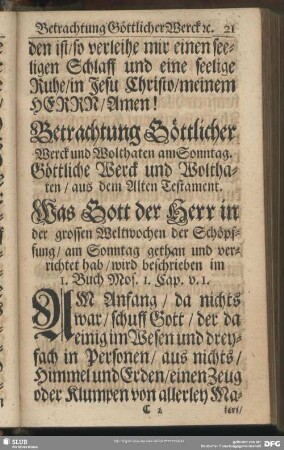 Betrachtung Göttlicher Werck ꝛc. 21
den ist/ so verleihe mir einen see-
ligen Schlaff und eine seelige
Ruhe/ in Jesu Christo/ meinem
HERRN/ Amen!
Betrachtung Göttlicher
Werck und Wolthaten am Sonntag.
Göttliche Werck und Woltha-
ten/ aus dem Alten Testament.
Was Gott der Herr in
der grossen Weltwochen der Schöpf-
fung/ am Sonntag gethan und ver-
richtet hab/ wird beschrieben im
1. Buch Mos. 1. Cap. v. 1.
AM Anfang/ da nichts
war/ schuff Gott/ der da
einig im Wesen und drey-
fach in Personen/ aus nichts/
Himmel und Erden/ einen Zeug
oder Klumpen von allerley Ma-
C 2 teri/
SLUB
DFG